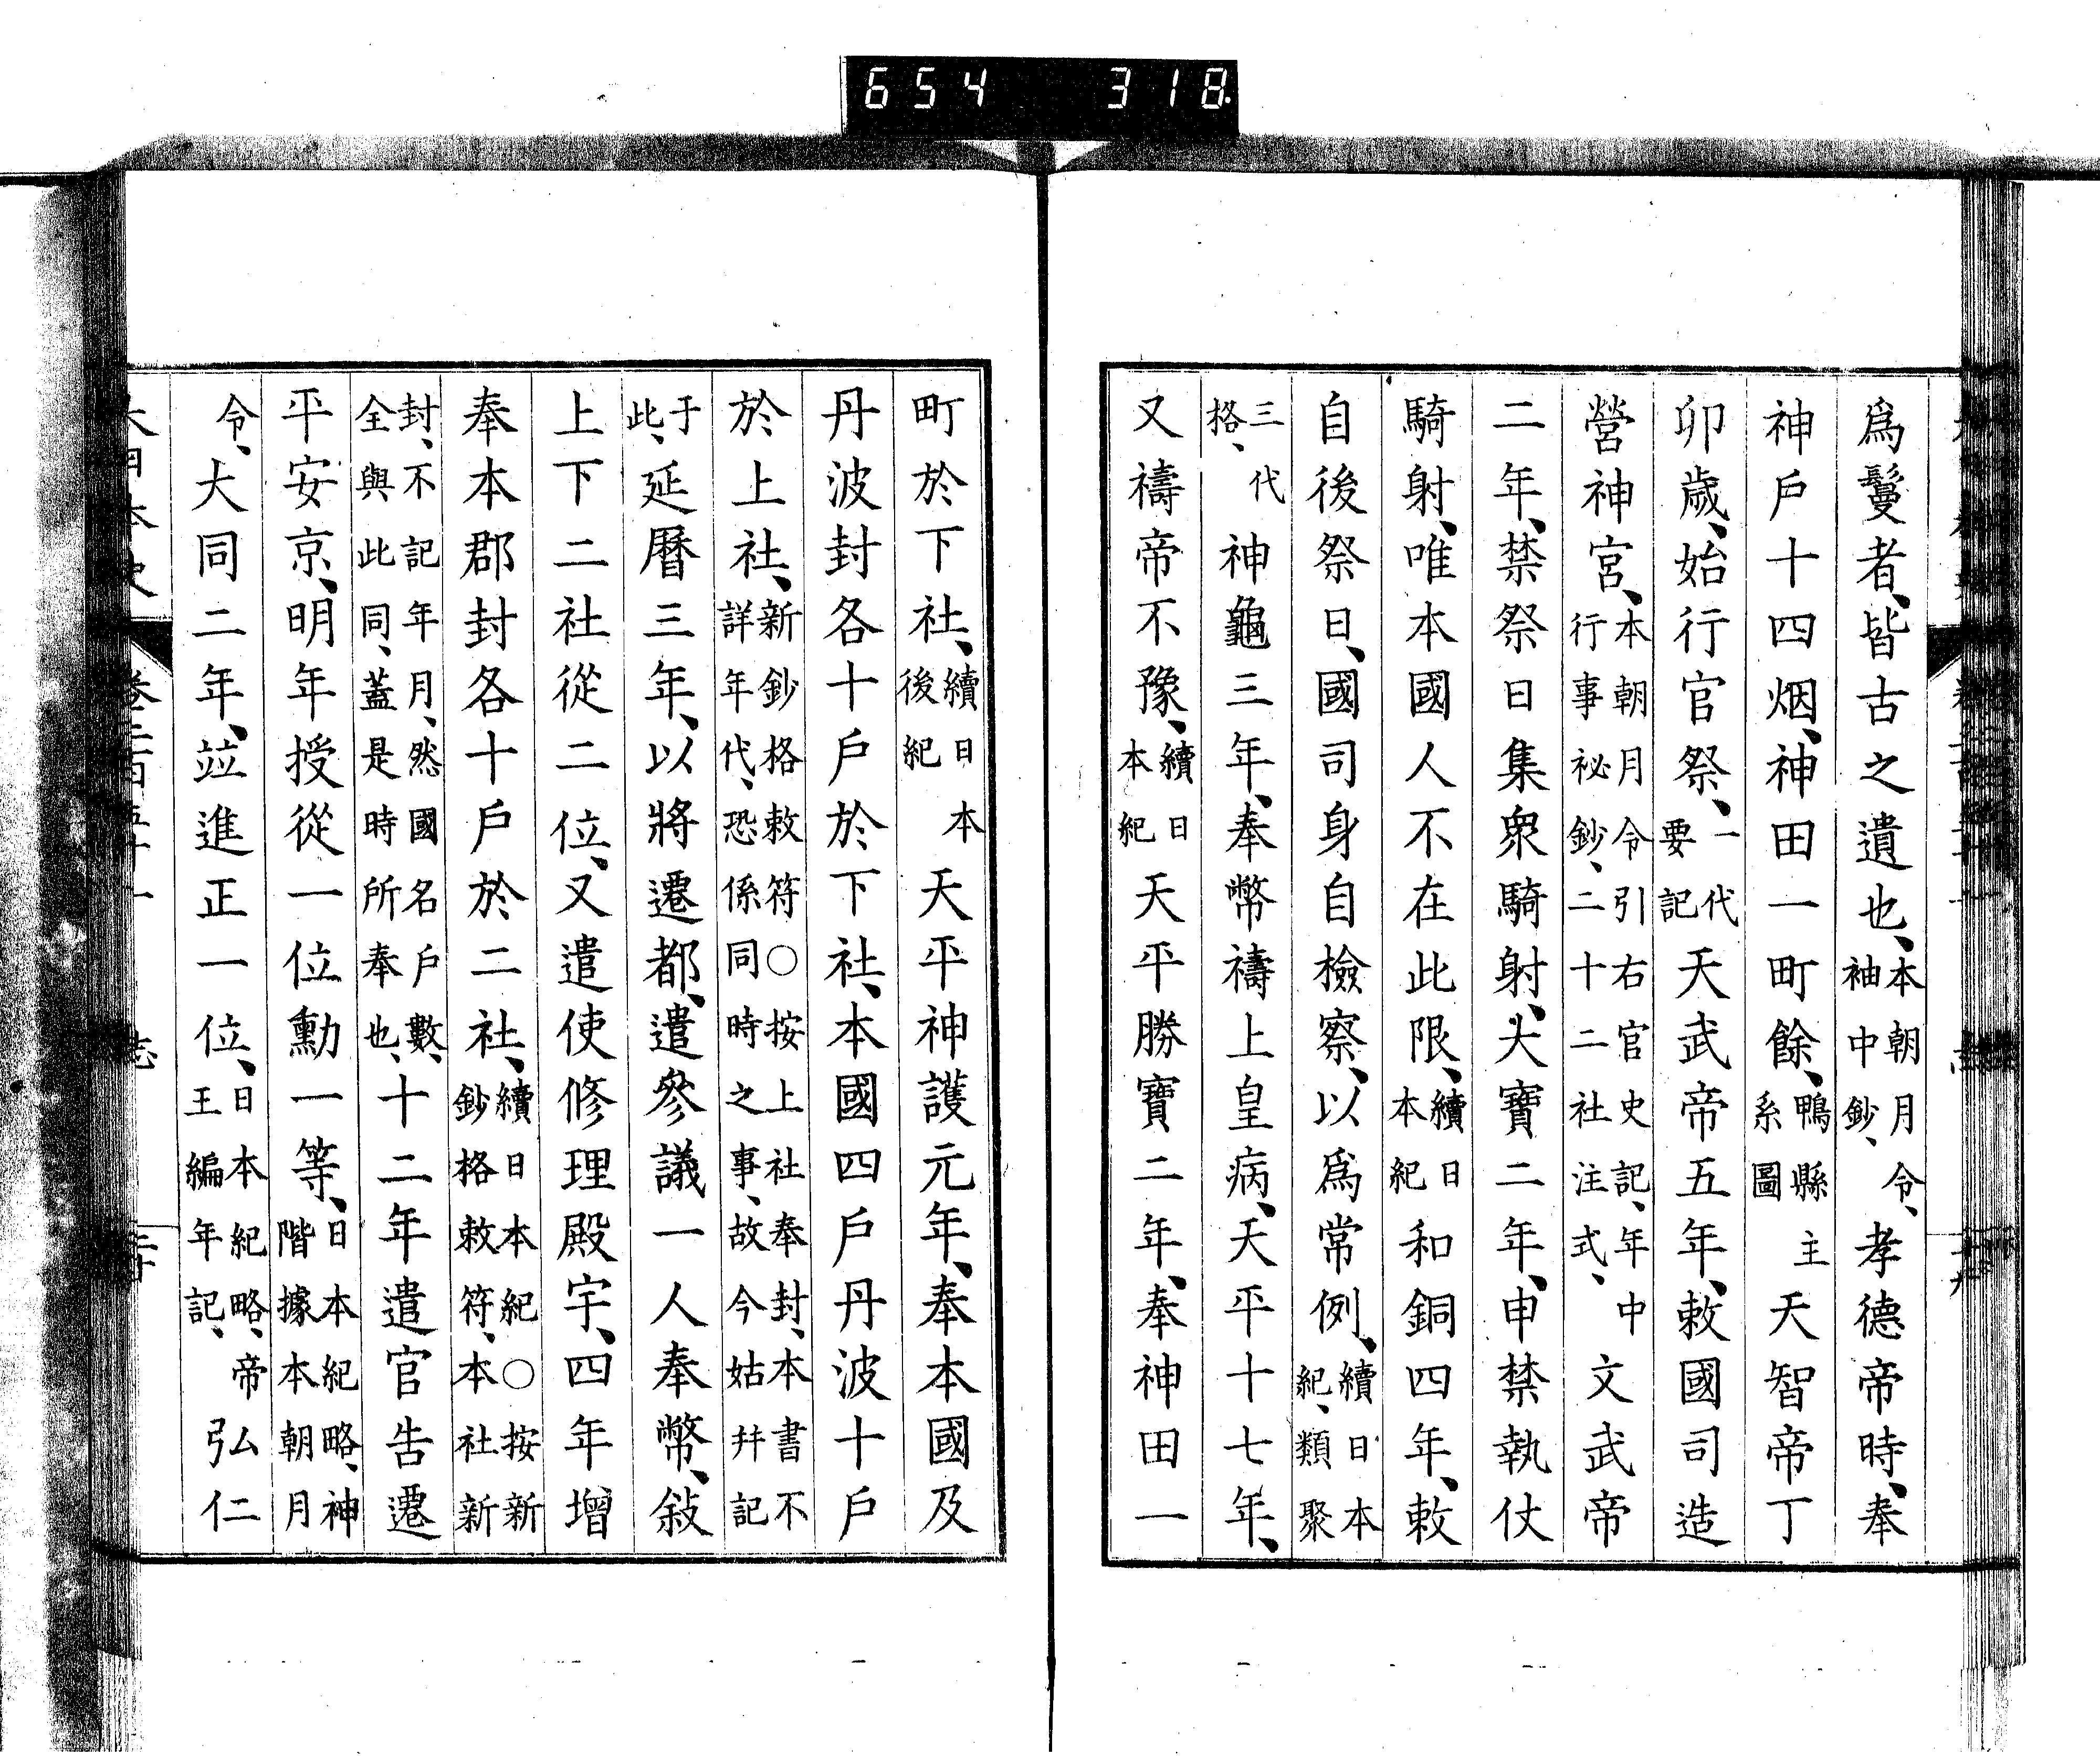 爲鬘者、皆古之遺也、本朝月令、袖中鈔、孝德帝時、奉
神戶十四烟、神田一町餘、鴨縣主系圖天智帝丁
卯歲、始行官祭、一代要記天武帝五年、敕國司造
營神宮、本朝月令引右官史記、年中行事祕鈔、二十二社注式、文武帝
二年、禁祭日集衆騎射、大寶二年、申禁執仗
騎射、唯本國人不在此限、續日本紀和銅四年、敕
自後祭日、國司身自檢察、以爲常例、續日本紀、類聚
三代格、神龜三年、奉幣禱上皇病、天平十七年、
又禱帝不豫、續日本紀天平勝寶二年、奉神田一
町於下社、續日本後紀天平神護元年、奉本國及
丹波封各十戶於下社、本國四戶丹波十戶
於上社、新鈔格敕符○按上社奉封、本書不詳年代、恐係同時之事、故今姑幷記
于此、延曆三年、以將遷都、遣參議一人奉幣、敍
上下二社從二位、又遣使修理殿宇、四年增
奉本郡封各十戶於二社、續日本紀○按新鈔格敕符、本社新
封、不記年月、然國名戶數、全與此同、蓋是時所奉也、十二年遣官告遷
平安京、明年授從一位勳一等、日本紀略、神階據本朝月
令、大同二年、竝進正一位、日本紀略、帝王編年記、弘仁
大日本史 卷二百五十一 志
654 318